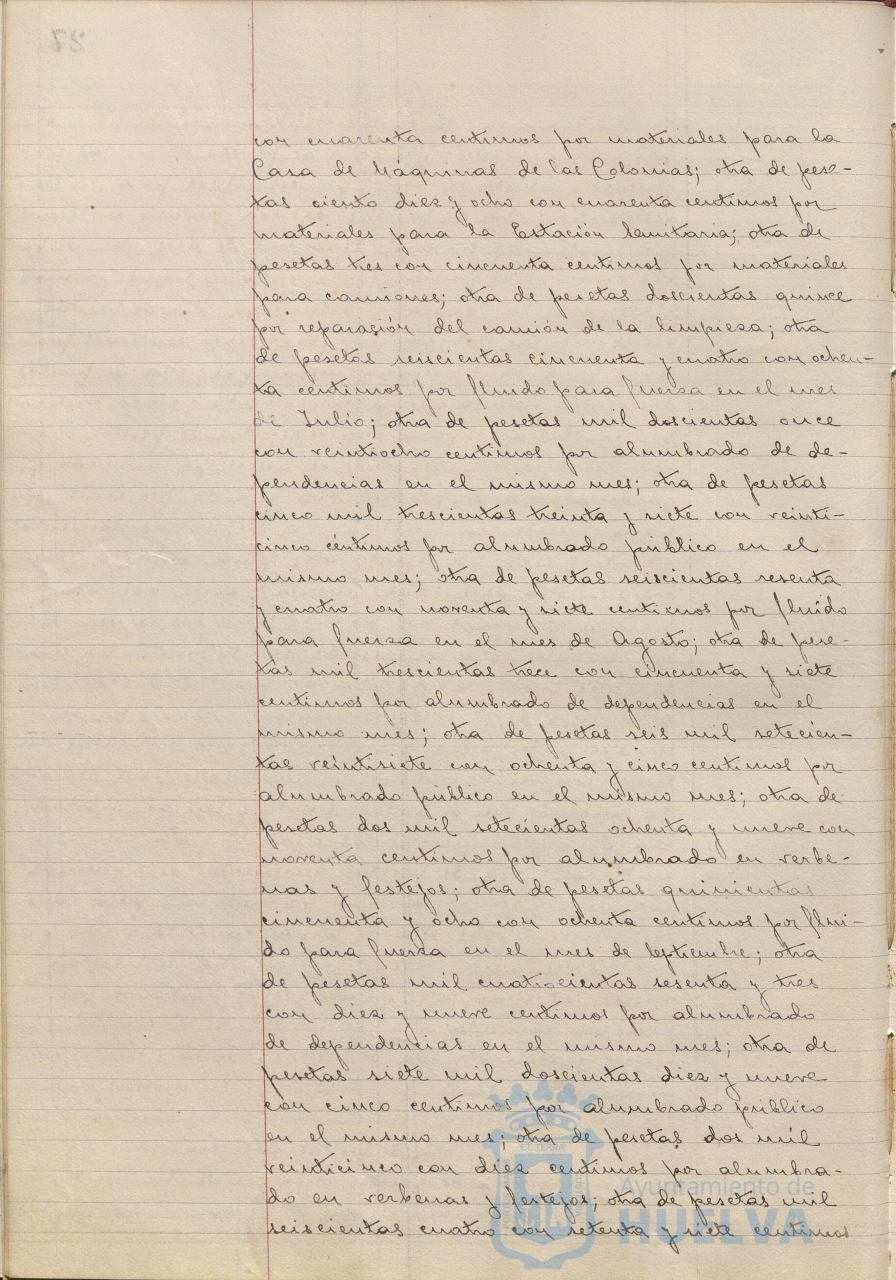 con cuarenta centimos por materiales para la
Casa de Máquinas de las Colonias; otra de pese-
tas ciento diez y ocho con cuarenta centimos por
materiales para la Estación Sanitaria; otra de
pesetas tres con cincuenta centimos por materiales
para camiones; otra de pesetas doscientas quince
por reparación del camión de la limpieza; otra
de pesetas seiscientas cincuenta y cuatro con ochen-
ta centimos por fluido para fuerza en el mes
de Julio; otra de pesetas mil doscientas once
con veintiocho centimos por alumbrado de de-
pendencias en el mismo mes; otra de pesetas
cinco mil trescientas treinta y siete con veinti-
cinco céntimos por alumbrado público en el
mismo mes; otra de pesetas seiscientas sesenta
y cuatro con noventa y siete centimos por fluído
para fuerza en el mes de Agosto; otra de pese-
tas mil trescientas trece con cincuenta y siete
centimos por alumbrado de dependencias en el
mismo mes; otra de pesetas seis mil setecien-
tas veintisiete con ochenta y cinco centimos por
alumbrado público en el mismo mes; otra de
pesetas dos mil setecientas ochenta y nueve con
noventa centimos por alumbrado en verbe-
nas y festejos; otra de pesetas quinientas
cincuenta y ocho con ochenta centimos por flui-
do para fuerza en el mes de Septiembre; otra
de pesetas mil cuatrocientas sesenta y tres
con diez y nueve centimos por alumbrado
de dependencias en el mismo mes; otra de
pesetas siete mil doscientas diez y nueve
con cinco centimos por alumbrado público
en el mismo mes; otra de pesetas dos mil
veinticinco con diez centimos por alumbra-
do en verbenas y festejos; otra de pesetas mil
seiscientas cuatro con setenta y siete centimos
Ayuntamiento de
HUELVA